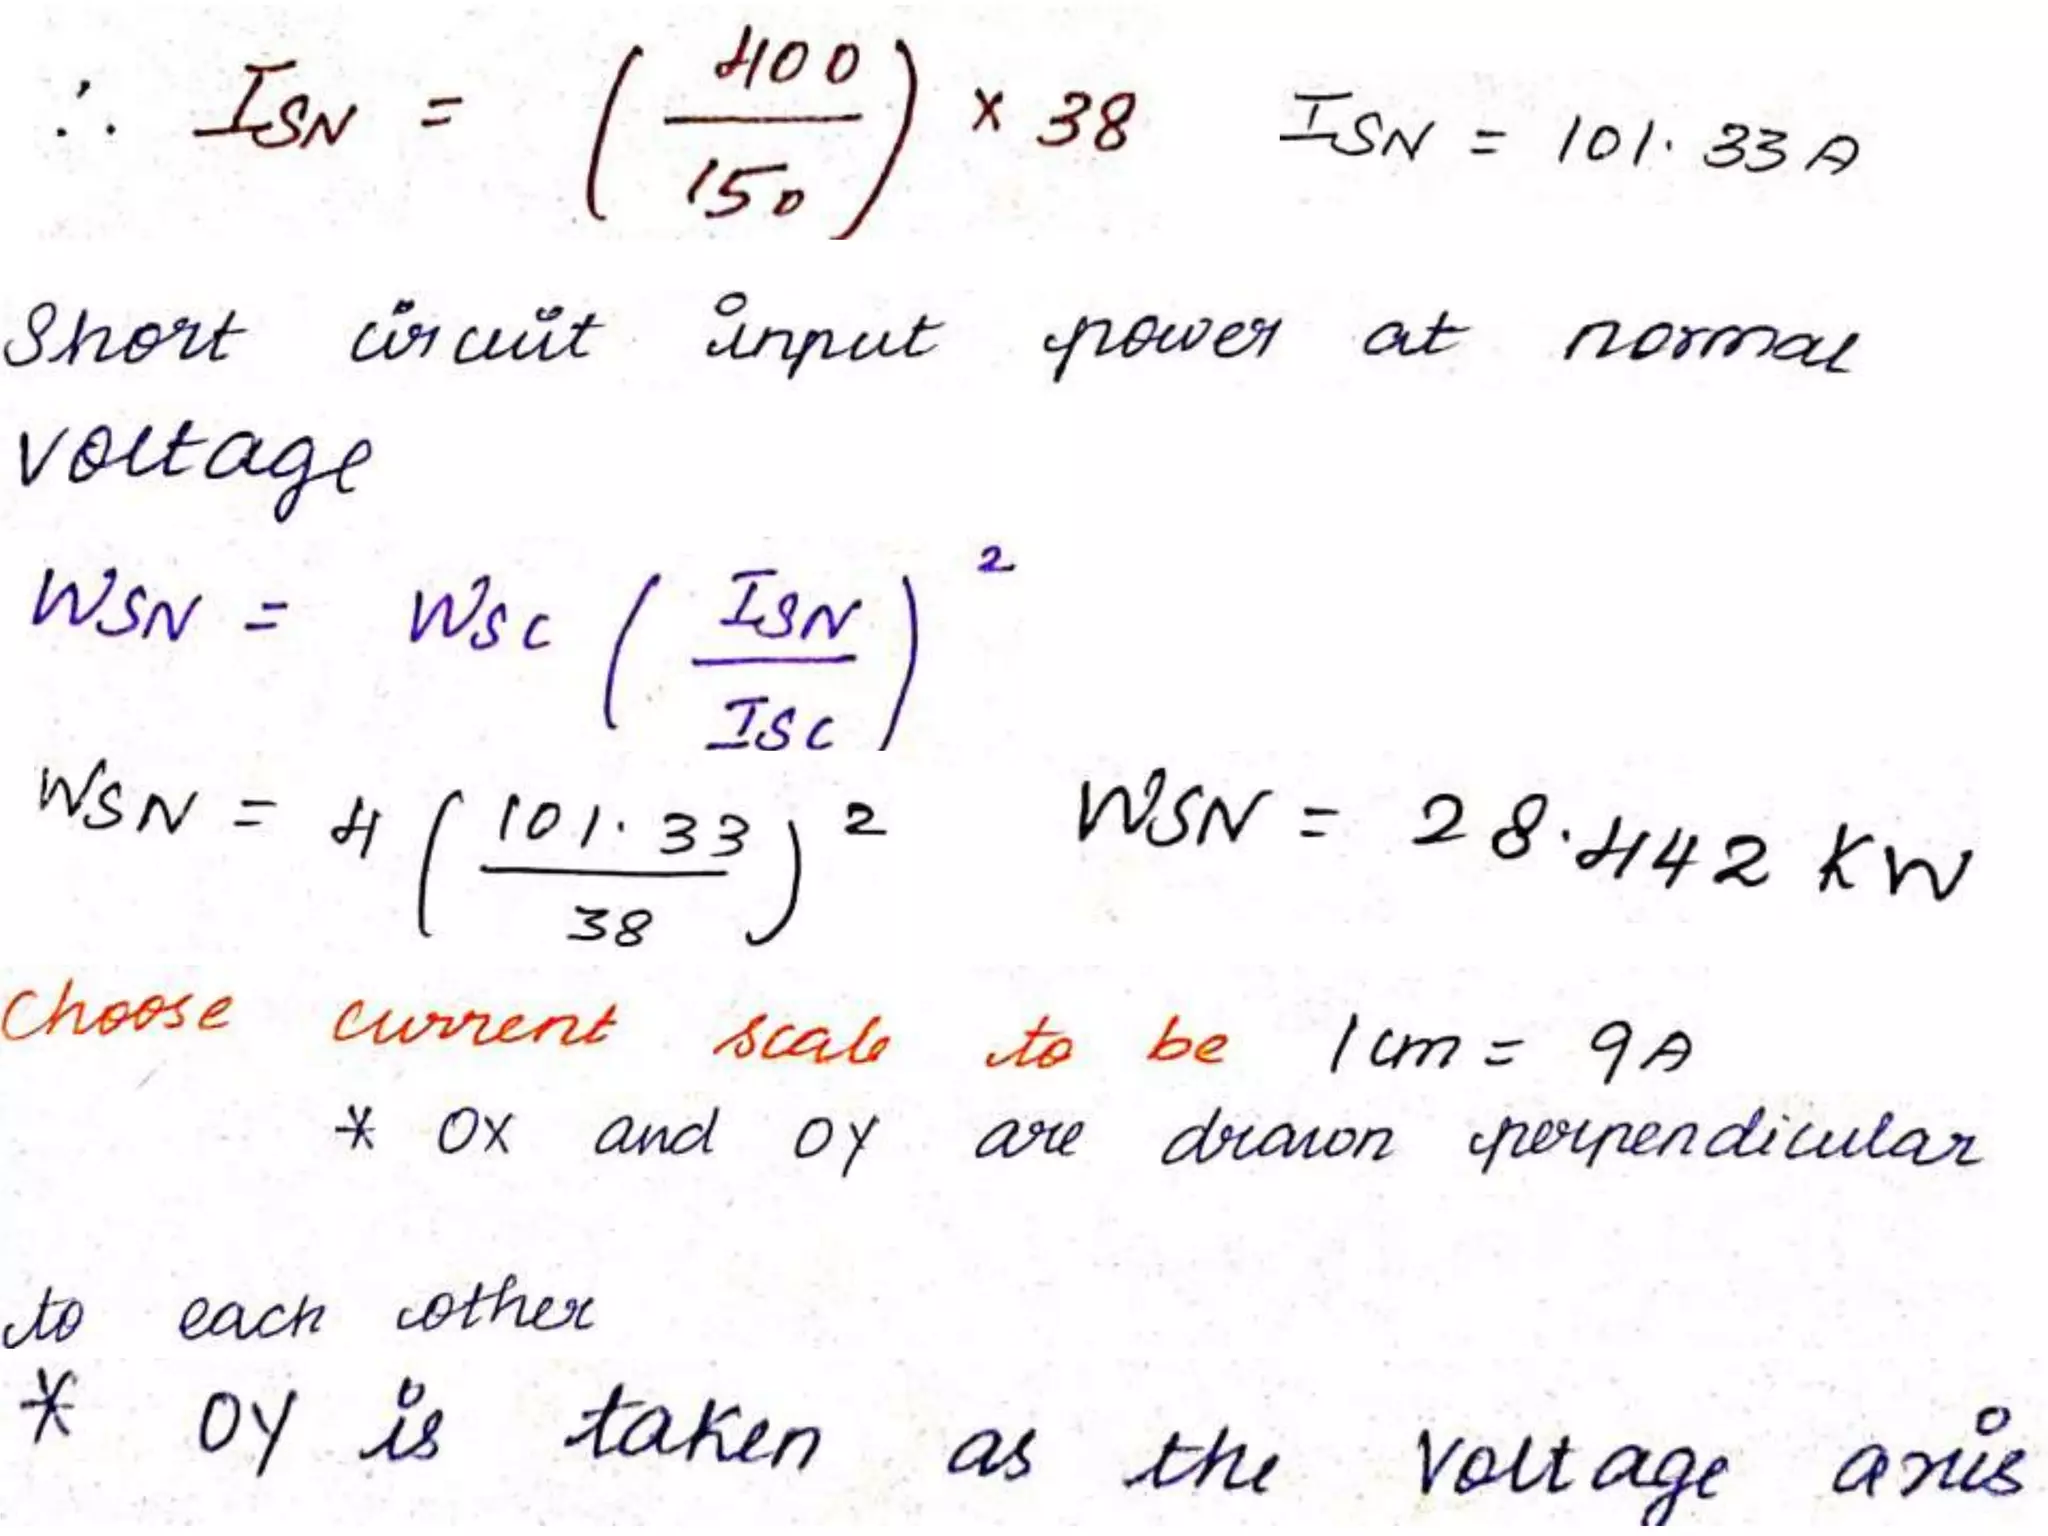 ∴ ISN = (400/150) × 38 ISN = 101.33 A
Short circuit input power at normal
voltage
WSN = WSC (ISN/ISC)²
WSN = 4 (101.33/38)² WSN = 28.442 KW
Choose current scale to be 1 cm = 9A
* OX and OY are drawn perpendicular
to each other
* OY is taken as the Voltage axis